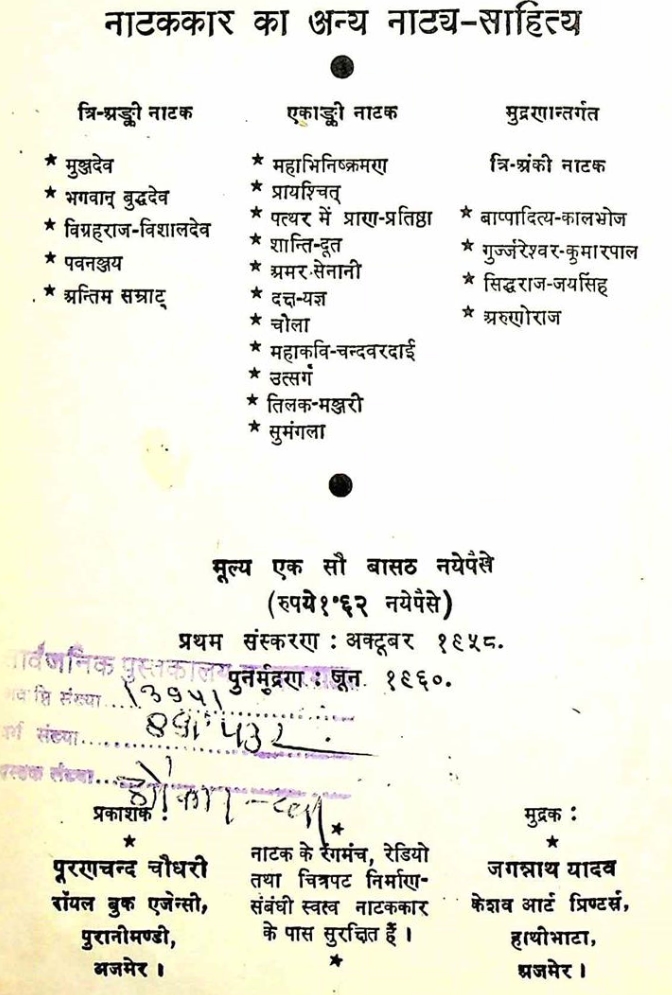 नाटककार का अन्य नाट्य-साहित्य
त्रि-अङ्की नाटक
★ मुञ्जदेव
★ भगवान् बुद्धदेव
★ विग्रहराज-विशालदेव
★ पवनञ्जय
★ अन्तिम सम्राट्
एकाङ्की नाटक
★ महाभिनिष्क्रमण
★ प्रायश्चित्
★ पत्थर में प्राण-प्रतिष्ठा
★ शान्ति-दूत
★ अमर-सेनानी
★ दक्ष-यज्ञ
★ चोला
★ महाकवि-चन्दवरदाई
★ उत्सर्ग
★ तिलक-मञ्जरी
★ सुमंगला
मुद्रणान्तर्गत
त्रि-अंकी नाटक
★ बाप्पादित्य-कालभोज
★ गुर्ज्जरेश्वर-कुमारपाल
★ सिद्धराज-जयसिंह
★ अरुणोराज
मूल्य एक सौ बासठ नयेपैसे
(रुपये१॰६२ नयेपैसे)
प्रथम संस्करण : अक्टूबर १९५८.
पुनर्मुद्रण : जून १९६०.
सार्वजनिक पुस्तकालय
संख्या 13951
वर्ग संख्या
पुस्तक संख्या
प्रकाशक :
★
पूरणचन्द चौधरी
रॉयल बुक एजेन्सी,
पुरानीमण्डी,
अजमेर ।
★
नाटक के रंगमंच, रेडियो
तथा चित्रपट निर्माण-
संबंधी स्वत्व नाटककार
के पास सुरक्षित हैं ।
★
मुद्रक :
★
जगन्नाथ यादव
केशव आर्ट प्रिण्टर्स,
हाथीभाटा,
अजमेर ।